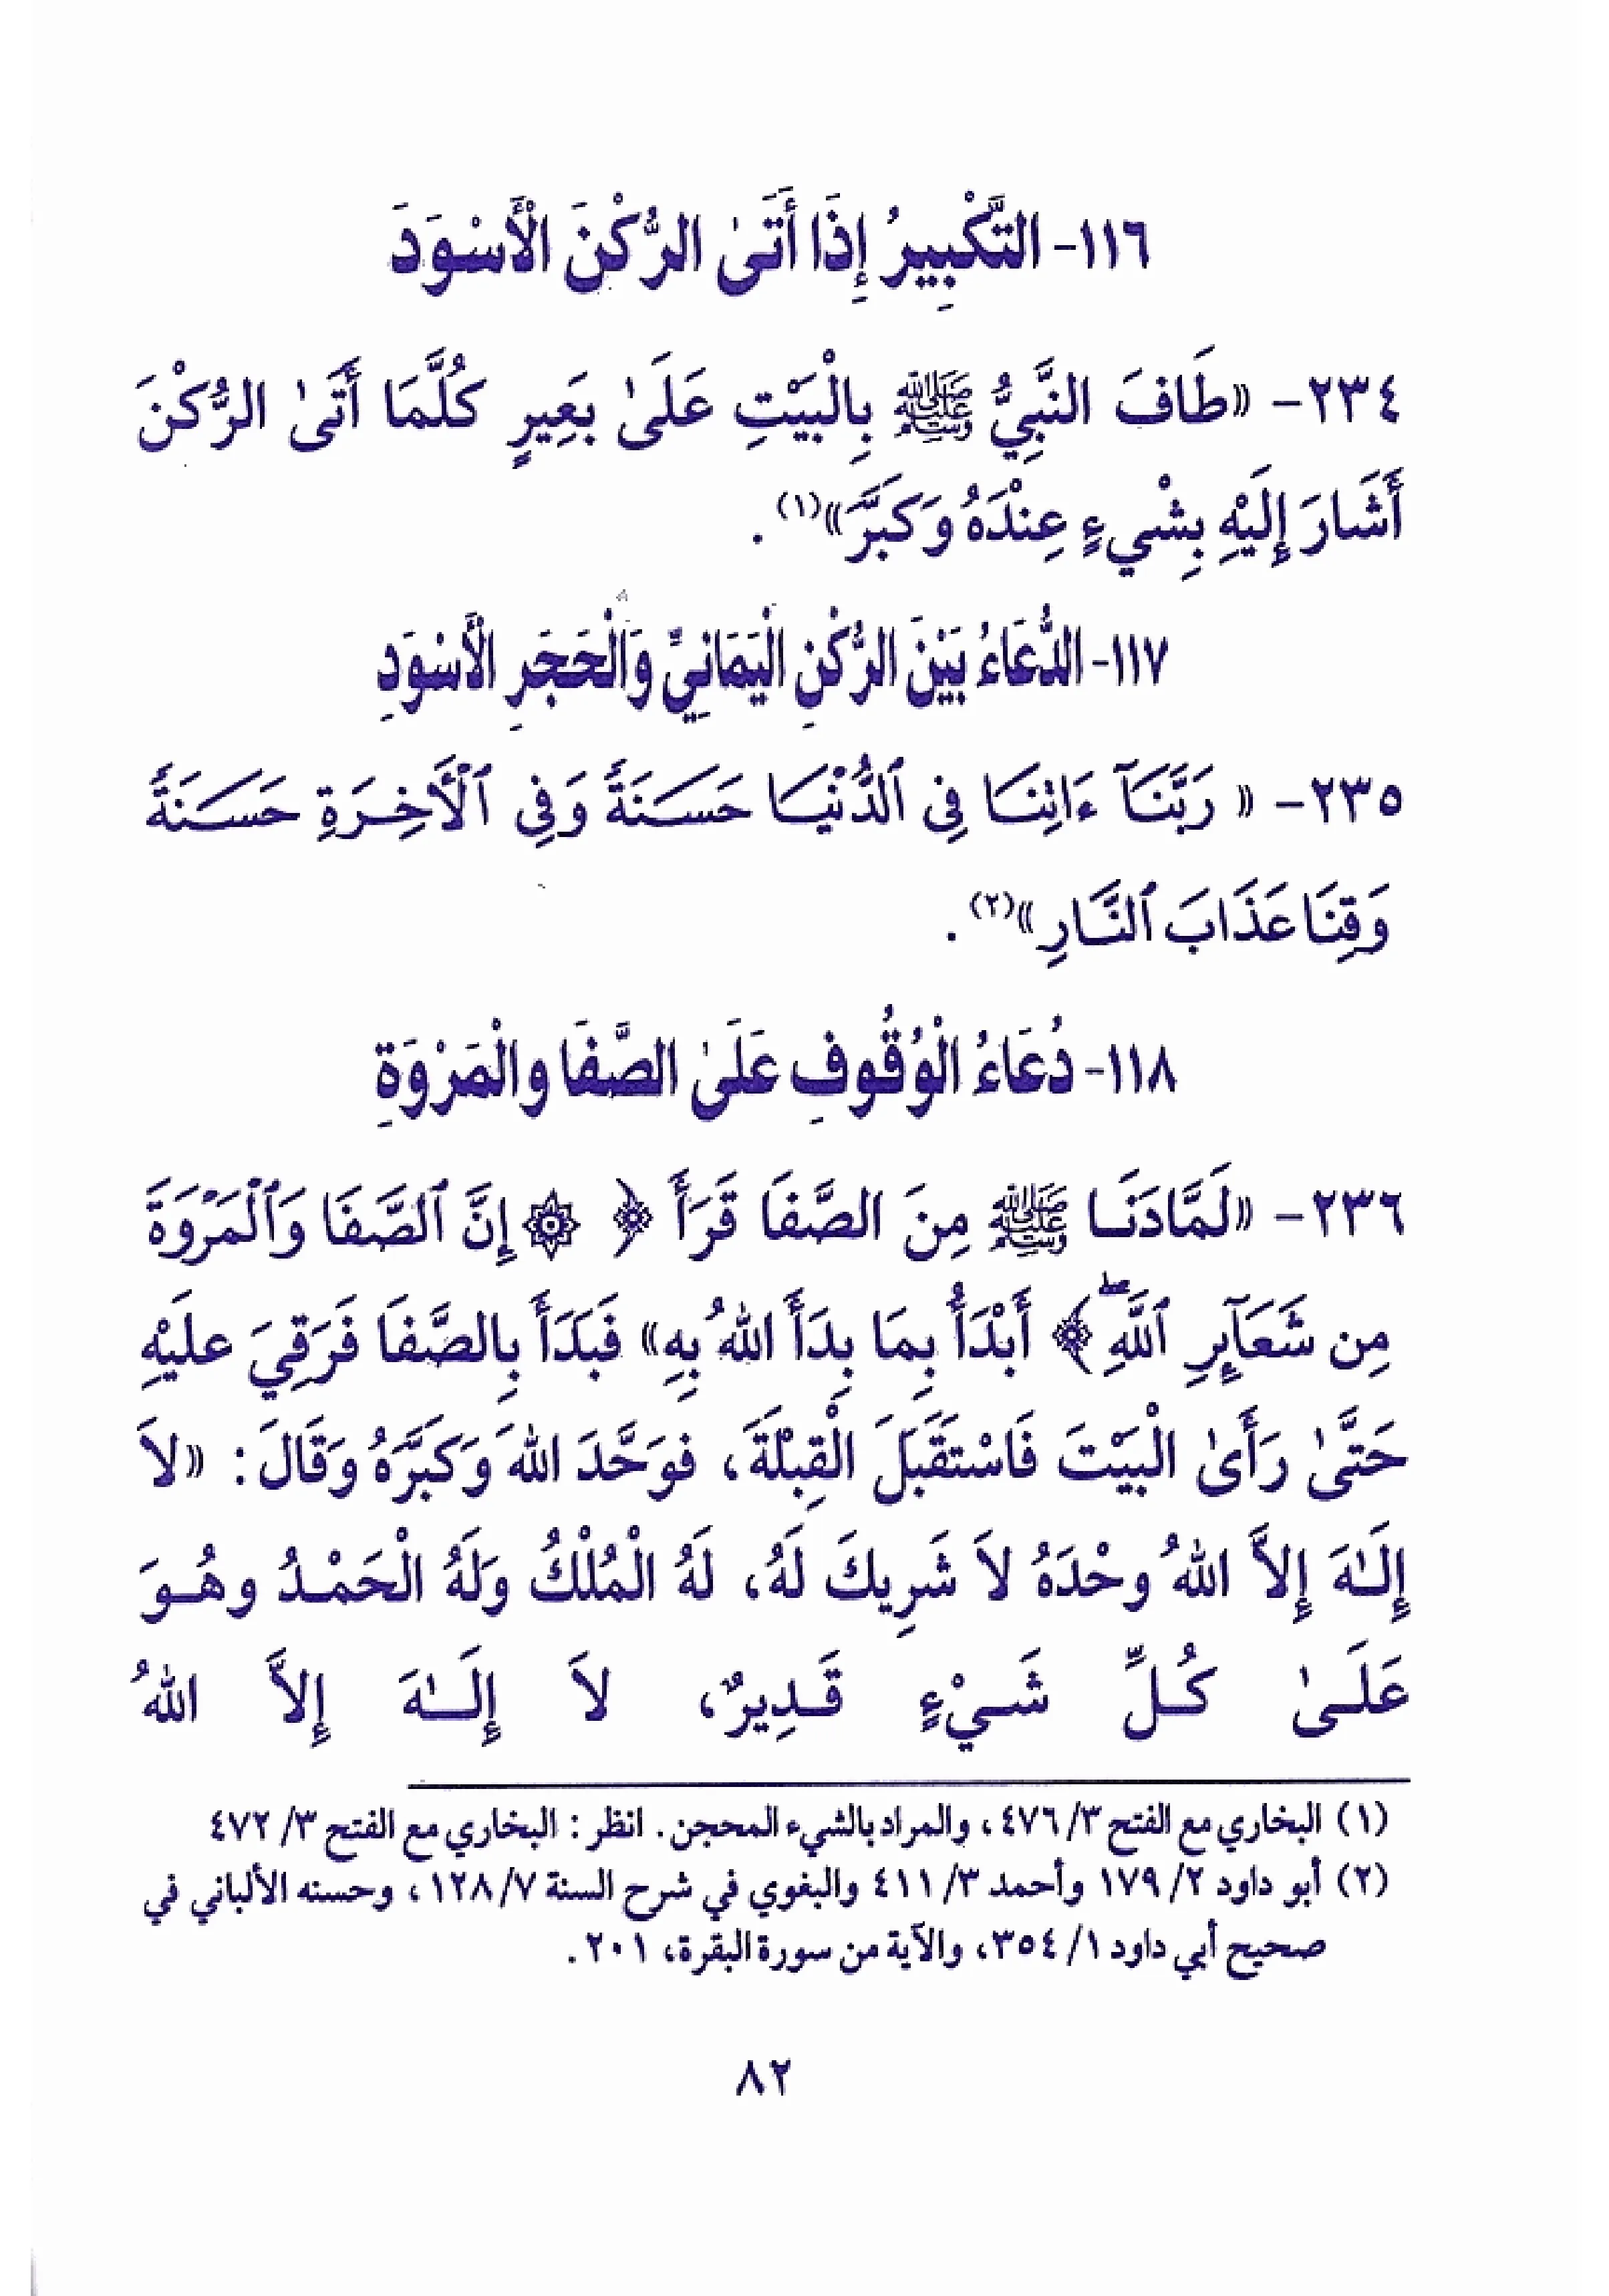 ١١٦- التَّكْبِيرُ إِذَا أَتَىٰ الرُّكْنَ الْأَسْوَدَ
٢٣٤- «طَافَ النَّبِيُّ ﷺ بِالْبَيْتِ عَلَىٰ بَعِيرٍ كُلَّمَا أَتَىٰ الرُّكْنَ
أَشَارَ إِلَيْهِ بِشْيءٍ عِنْدَهُ وَكَبَّرَ»(١).
١١٧- الدُّعَاءُ بَيْنَ الرُّكْنِ الْيَمَانِيِّ وَالْحَجَرِ الْأَسْوَدِ
٢٣٥- « رَبَّنَآ ءَاتِنَا فِى ٱلدُّنْيَا حَسَنَةً وَفِى ٱلْأَخِرَةِ حَسَنَةً
وَقِنَا عَذَابَ ٱلنَّارِ »(٢).
١١٨- دُعَاءُ الْوُقُوفِ عَلَىٰ الصَّفَا والْمَرْوَةِ
٢٣٦- «لَمَّا دَنَا ﷺ مِنَ الصَّفَا قَرَأَ ﴿ ۞ إِنَّ ٱلصَّفَا وَٱلْمَرْوَةَ
مِن شَعَآئِرِ ٱللَّهِۖ﴾ أَبْدَأُ بِمَا بدَأَ اللهُ بِهِ» فَبَدَأَ بِالصَّفَا فَرَقِيَ عليْهِ
حَتَّىٰ رَأَىٰ الْبَيْتَ فَاسْتَقَبَلَ الْقِبْلَةَ، فوَحَّدَ اللهَ وَكَبَّرَهُ وَقَالَ: «لاَ
إِلَـٰهَ إِلاَّ اللهُ وحْدَهُ لاَ شَرِيكَ لَهُ، لَهُ الْمُلْكُ وَلَهُ الْحَمْدُ وهُوَ
عَلَىٰ كُلِّ شَيْءٍ قَدِيرٌ، لاَ إِلَـٰهَ إِلاَّ اللهُ
(١) البخاري مع الفتح ٣/ ٤٧٦، والمراد بالشيء المحجن. انظر: البخاري مع الفتح ٣/ ٤٧٢
(٢) أبو داود ٢/ ١٧٩ وأحمد ٣/ ٤١١ والبغوي في شرح السنة ٧/ ١٢٨، وحسنه الألباني في
صحيح أبي داود ١/ ٣٥٤، والآية من سورة البقرة، ٢٠١.
٨٢